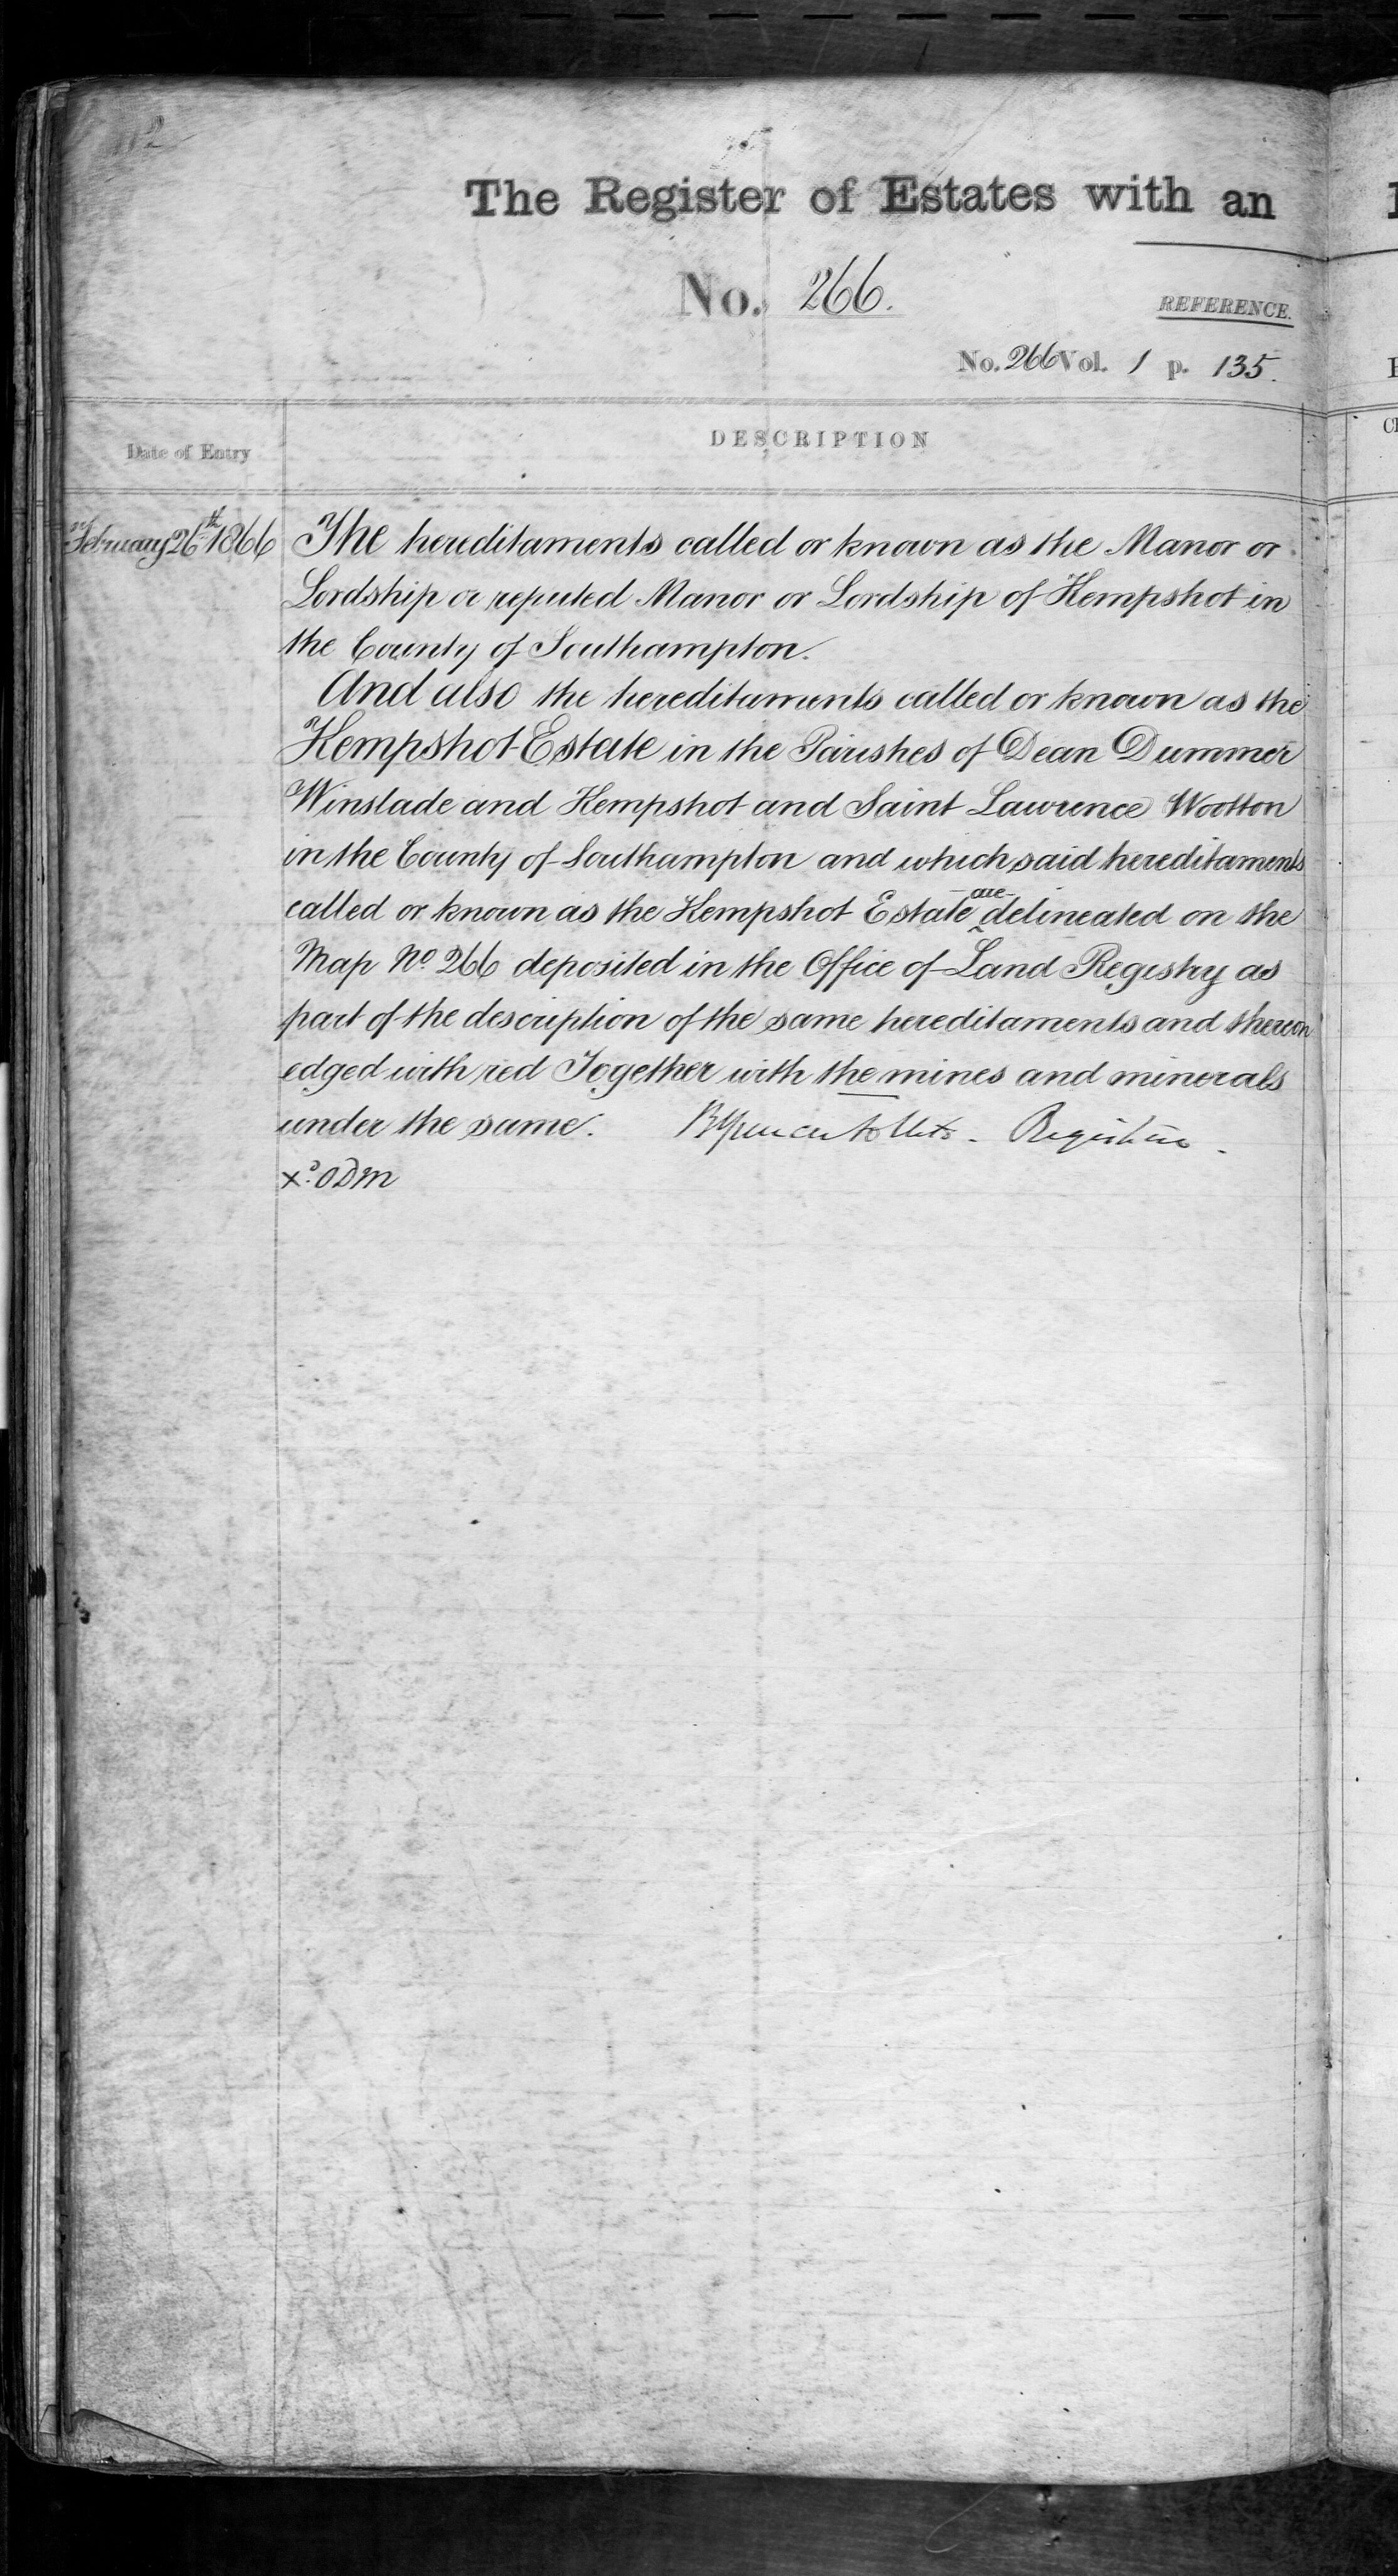 2
The Register of Estates with an
No. 266.
REFERENCE.
No. 266 Vol. 1 p. 135.
Date of Entry
DESCRIPTION
February 26th 1866
The hereditaments called or known as the Manor or
Lordship or reputed Manor or Lordship of Kempshot in
the County of Southampton.
And also the hereditaments called or known as the
Kempshot Estate in the Parishes of Dean Dummer
Winslade and Kempshot and Saint Lawrence Wootton
in the County of Southampton and which said hereditaments
called or known as the Kempshot Estate are delineated on the
Map No. 266 deposited in the Office of Land Registry as
part of the description of the same hereditaments and thereon
edged with red Together with the mines and minerals
under the same. Registrar.
xd. ODM